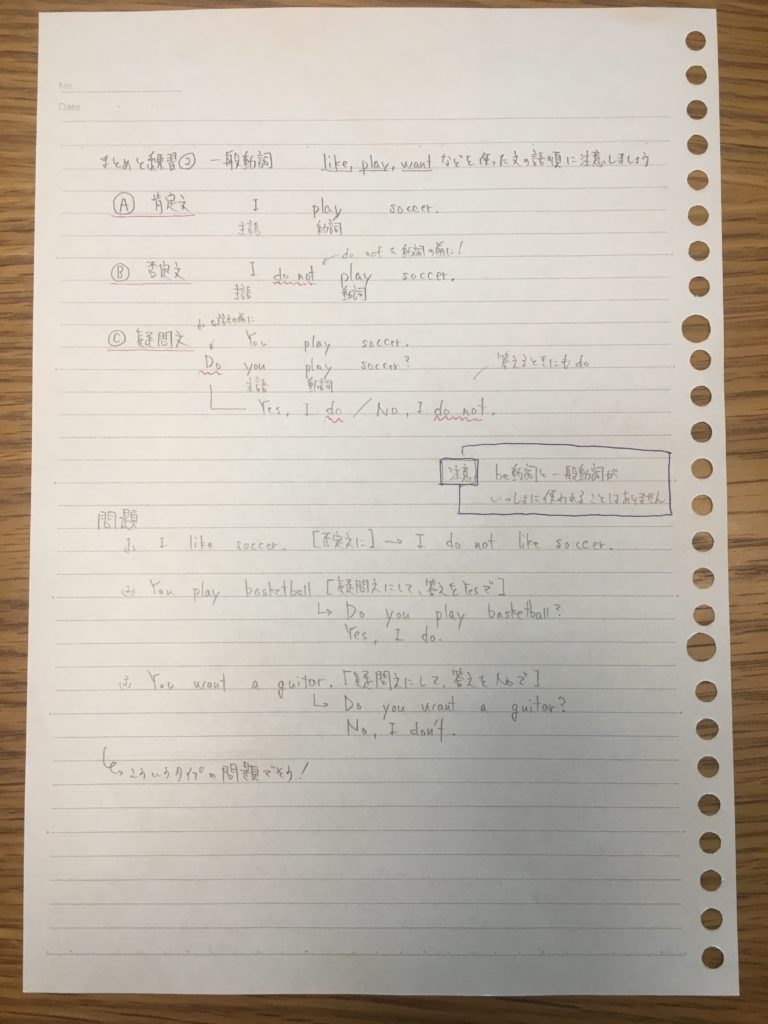 No.
Date
まとめと練習② 一般動詞 like, play, want などを使った文の語順に注意しましょう
Ⓐ 肯定文 I play soccer.
主語 動詞
do not を動詞の前に!
Ⓑ 否定文 I do not play soccer.
主語 動詞
do を主語の前に
Ⓒ 疑問文 You play soccer.
Do you play soccer? 答えるときにもdo
主語 動詞
Yes, I do / No, I do not.
注意 be動詞と一般動詞が
いっしょに使われることはありません
問題
1, I like soccer. [否定文に] → I do not like soccer.
2, You play basketball [疑問文にして、答えをYesで]
↳ Do you play basketball?
Yes, I do.
3, You want a guitar. [疑問文にして、答えをNoで]
↳ Do you want a guitar?
No, I don't.
↳ こういうタイプの問題でそう!